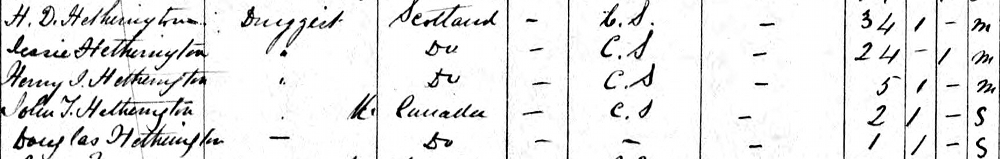 H. D. Hetherington Druggist Scotland – C. S. – 34 1 – m
Jessie Hetherington " Do – C. S – 24 – 1 m
Henry J. Hetherington " Do – C. S – 5 1 – m
John T. Hetherington " U. Canada – C. S – 2 1 – S
Douglas Hetherington – Do – – – 1 1 – S